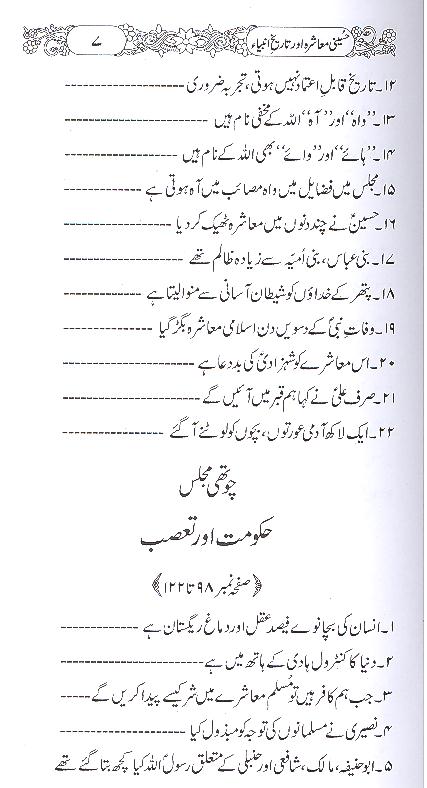 حسینی معاشرہ اور تاریخ انبیاء ۷
۱۲۔ تاریخ قابلِ اعتماد نہیں ہوتی، تجربہ ضروری ---------------
۱۳۔ "واہ" اور "آہ" اللہ کے مخفی نام ہیں ---------------
۱۴۔ "ہائے" اور "وائے" بھی اللہ کے نام ہیں ---------------
۱۵۔ مجلس میں فضایل میں واہ مصائب میں آہ ہوتی ہے ---------------
۱۶۔ حسینؑ نے چند دنوں میں معاشرہ ٹھیک کر دیا ---------------
۱۷۔ بنی عباس، بنی اُمیّہ سے زیادہ ظالم تھے ---------------
۱۸۔ پتھر کے خداؤں کو شیطان آسانی سے منوالیتا ہے ---------------
۱۹۔ وفاتِ نبیؐ کے دسویں دن اسلامی معاشرہ بگڑ گیا ---------------
۲۰۔ اس معاشرے کو شہزادیؑ کی بددعا ہے ---------------
۲۱۔ صرف علیؑ نے کہا ہم قبر میں آئیں گے ---------------
۲۲۔ ایک لاکھ آدمی عورتوں، بچوں کو لوٹنے آ گئے ---------------
چوتھی مجلس
حکومت اور تعصب
﴿صفحہ نمبر ۹۸ تا ۱۲۲﴾
۱۔ انسان کی پچانوے فیصد عقل اور دماغ ریگستان ہے ---------------
۲۔ دنیا کا کنٹرول ہادی کے ہاتھ میں ہے ---------------
۳۔ جب ہم کافر ہیں تو مُسلم معاشرے میں شر کیسے پیدا کریں گے -----
۴۔ نصیری نے مسلمانوں کی توجہ کو مبذول کیا ---------------
۵۔ ابو حنیفہ، مالک، شافعی اور حنبلی کے متعلق رسولؐ اللہ کیا کچھ بتا گئے تھے